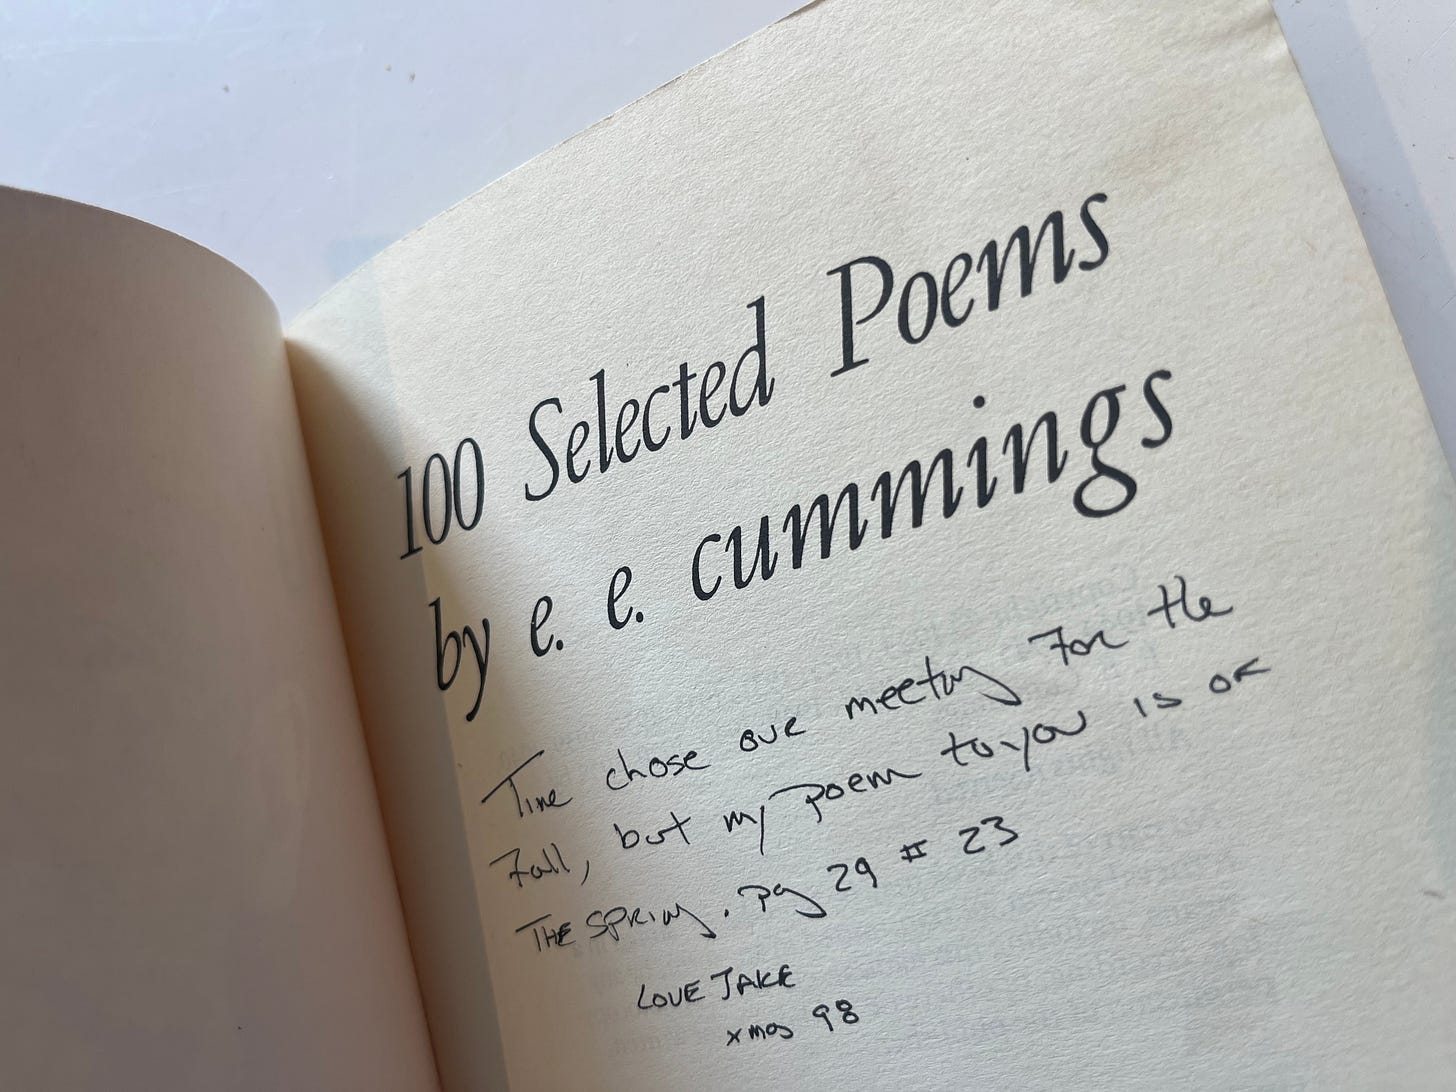 100 Selected Poems
by e. e. cummings
Time chose our meeting For the
Fall, but my Poem to you is OF
THE SPRING. Pg 29 # 23
LOVE JAKE
xmas 98